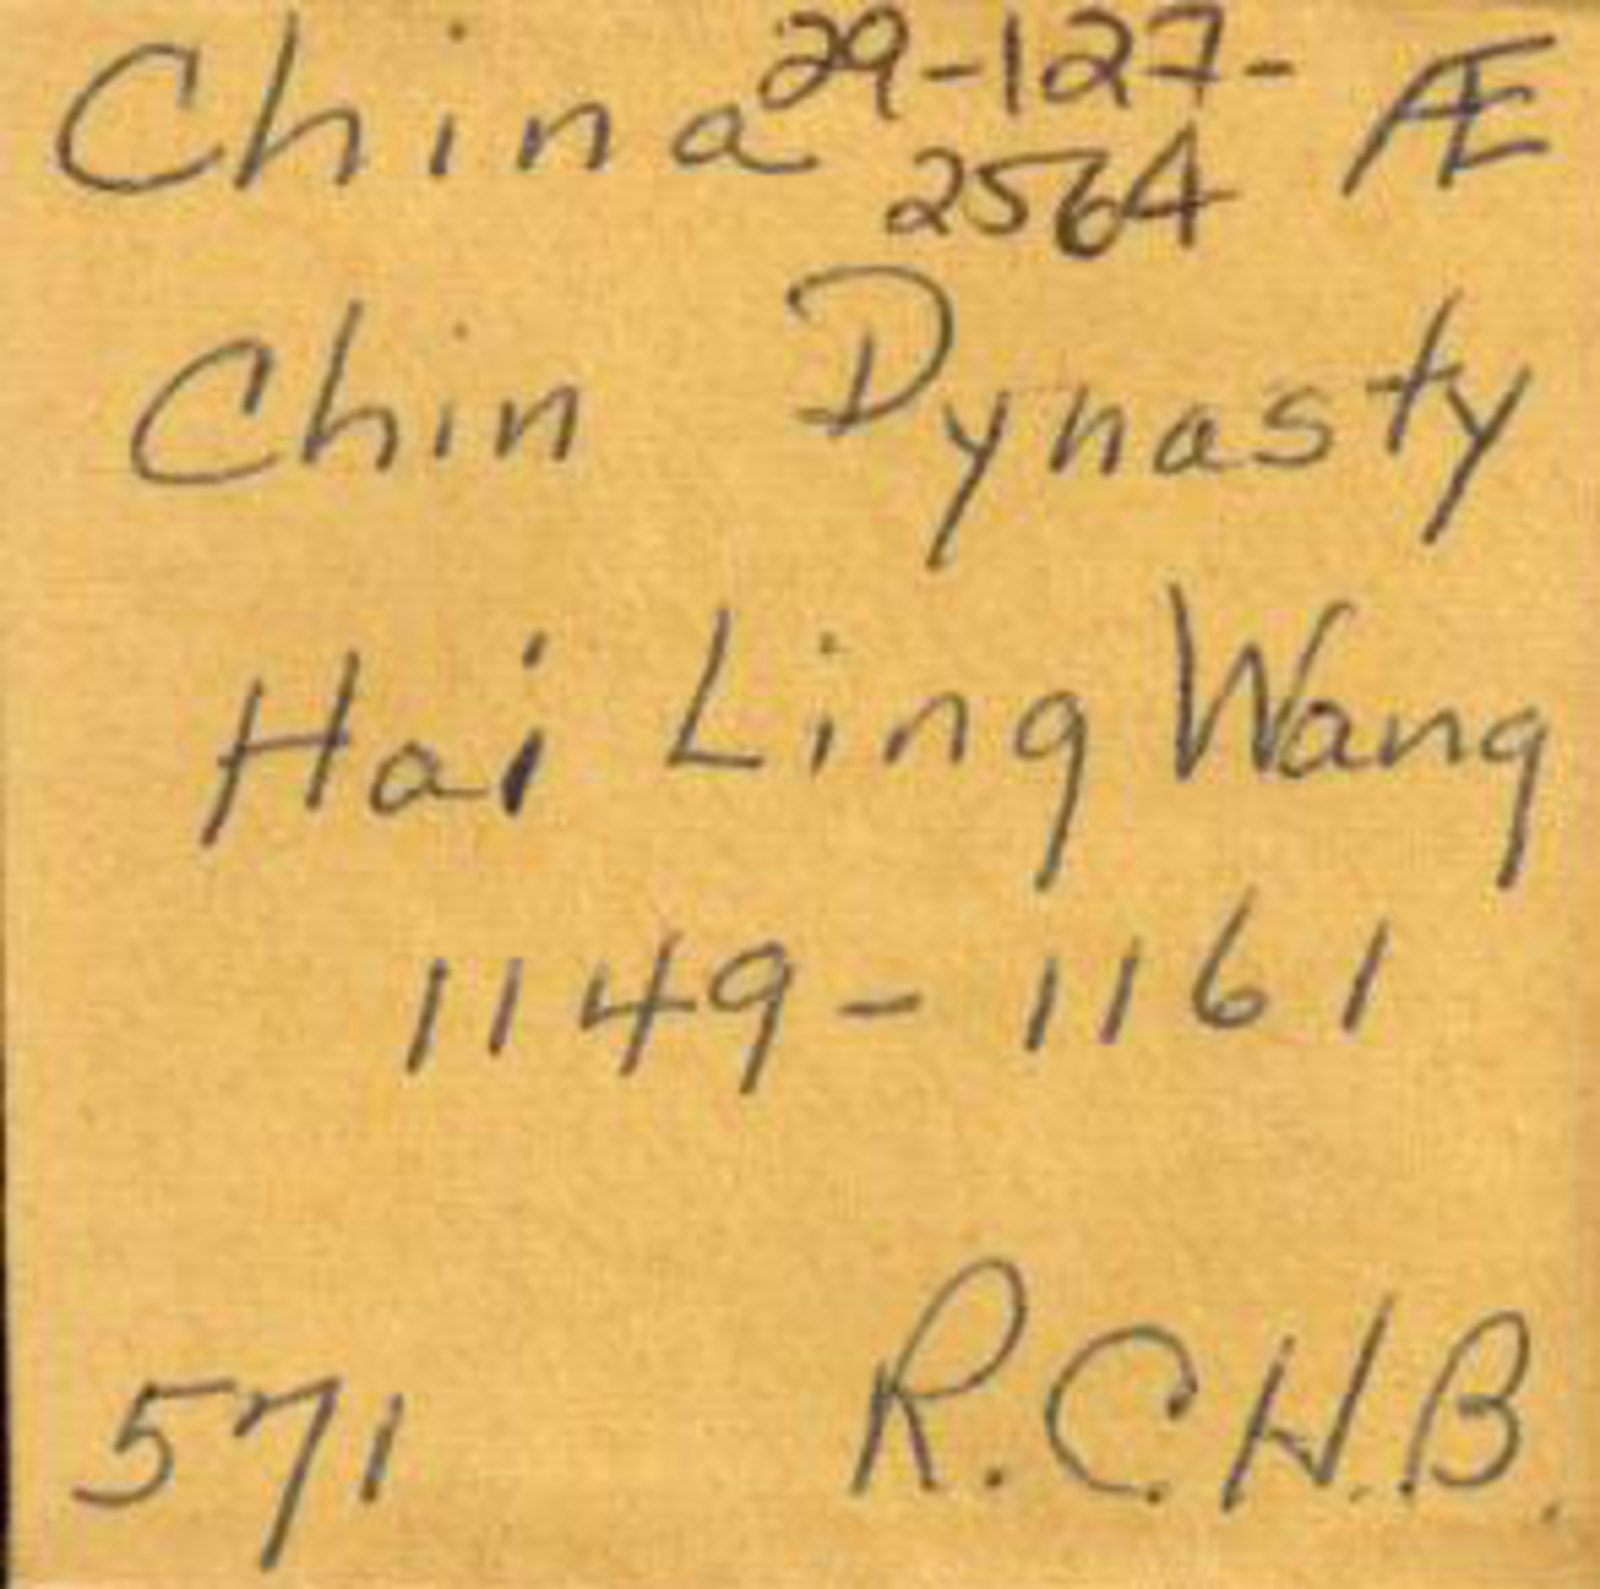 China 29-127- Æ
2564
Chin Dynasty
Hai Ling Wang
1149-1161
571 R.C.H.B.